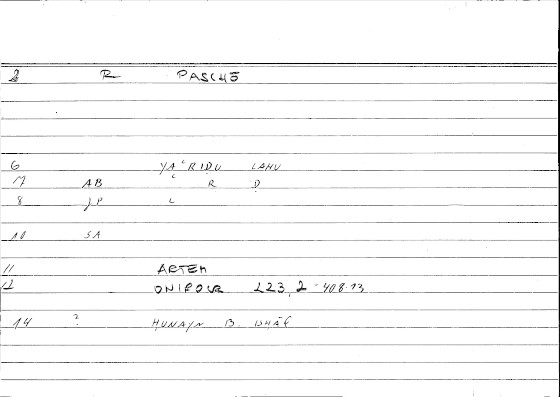 2 R PASCHŌ
6 YAʿRIḌU LAHU
7 AB ʿ R Ḍ
8 JP L
10 SA
11 ARTEM
12 ONIROCR. 223,2 - 408.13
14 ? ḤUNAYN B. ISḤĀḲ